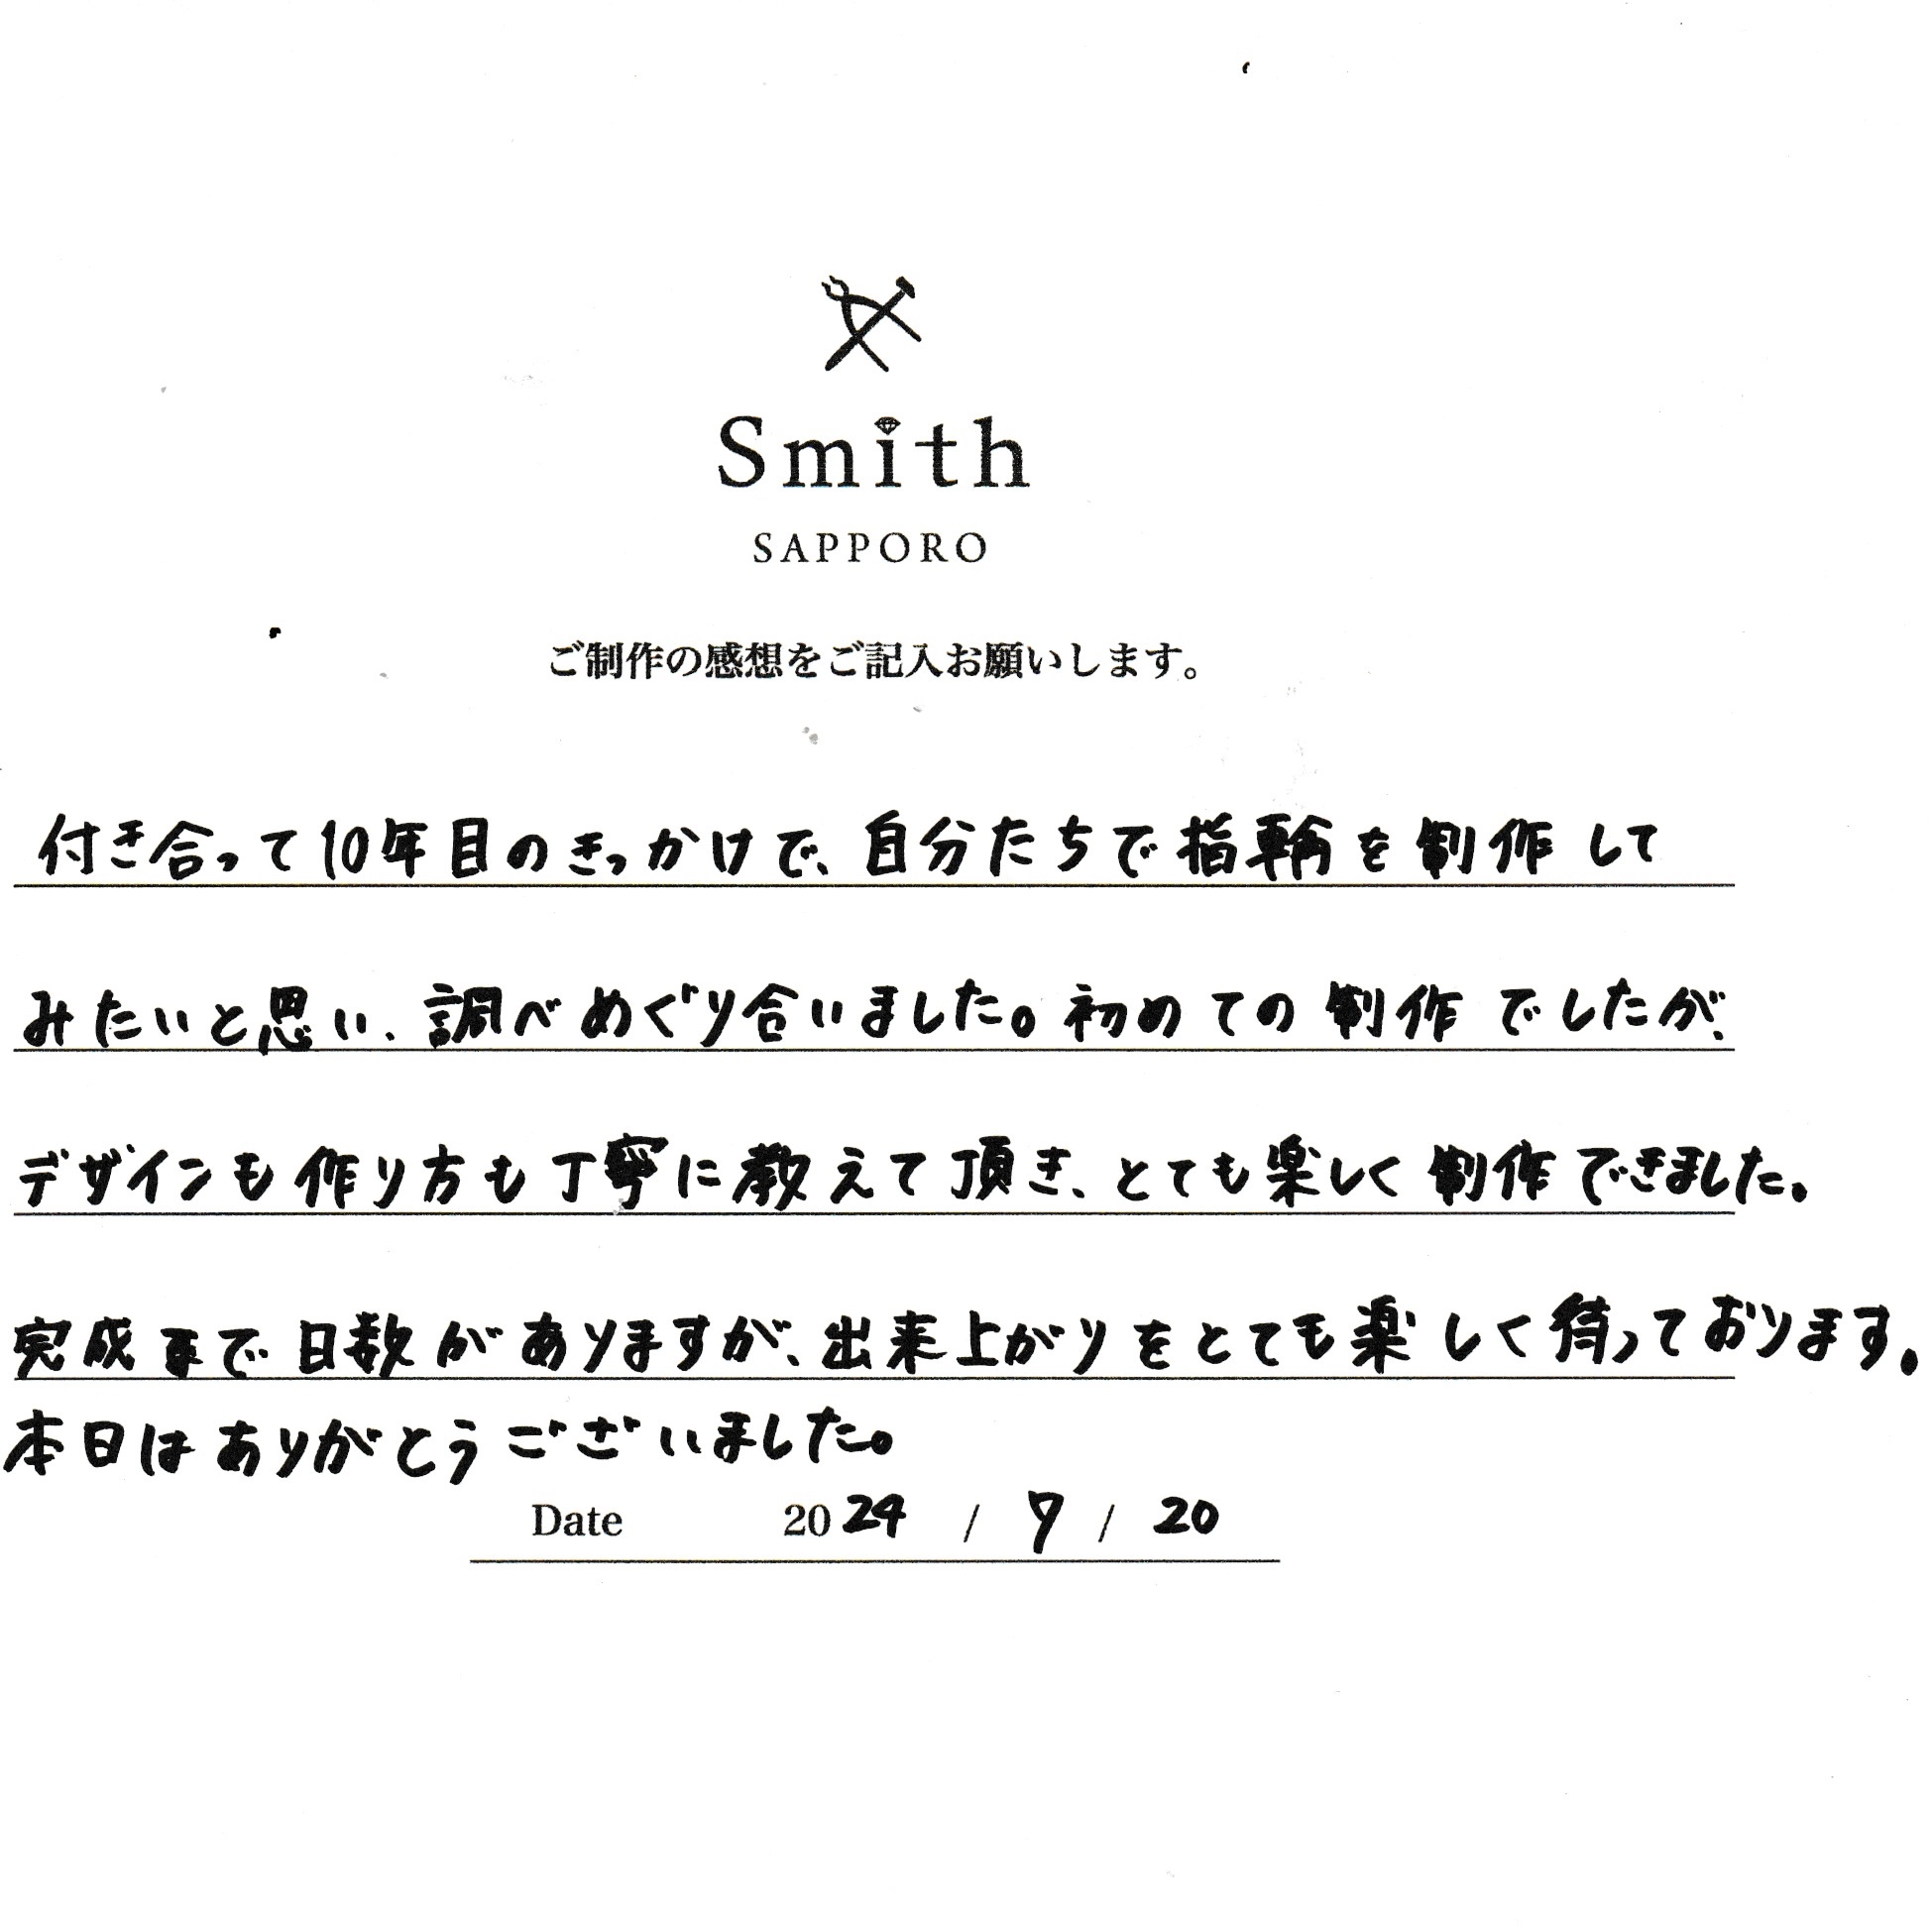 Smith
SAPPORO
ご制作の感想をご記入お願いします。
付き合って10年目のきっかけで、自分たちで指輪を制作して
みたいと思い、調べめぐり合いました。初めての制作でしたが、
デザインも作り方も丁寧に教えて頂き、とても楽しく制作できました。
完成まで日数がありますが、出来上がりをとても楽しく待っております。
本日はありがとうございました。
Date 2024 / 9 / 20